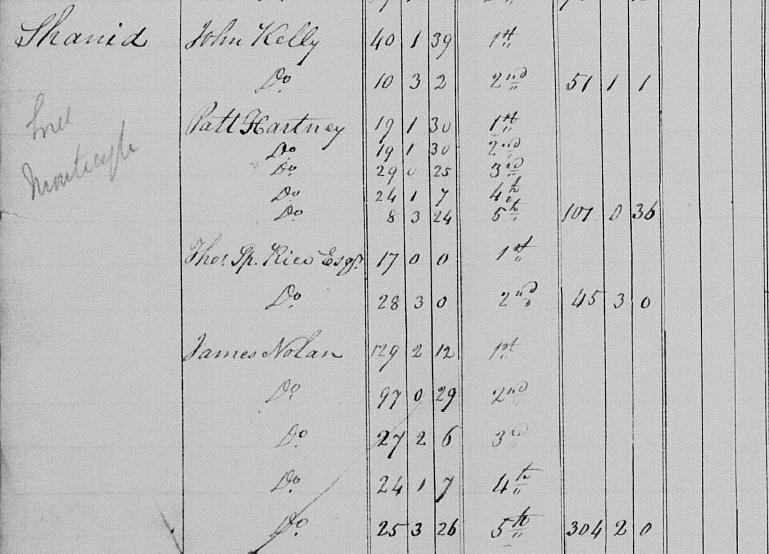 Shanid John Kelly 40 1 39 1st
Do 10 3 2 2nd 51 1 1
Patt Hartney 19 1 30 1st
Do 19 1 30 2nd
Do 29 0 25 3rd
Do 24 1 7 4th
Do 8 3 24 5th 101 0 36
Thos Sp. Rice Esqr. 17 0 0 1st
Do 28 3 0 2nd 45 3 0
James Nolan 129 2 12 1st
Do 97 0 29 2nd
Do 27 2 6 3rd
Do 24 1 7 4th
Do 25 3 26 5th 304 2 0